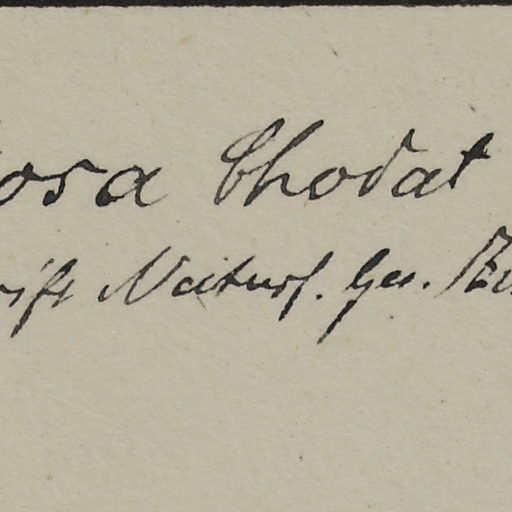 osa Chodat
rift Naturf. Ges. Zü